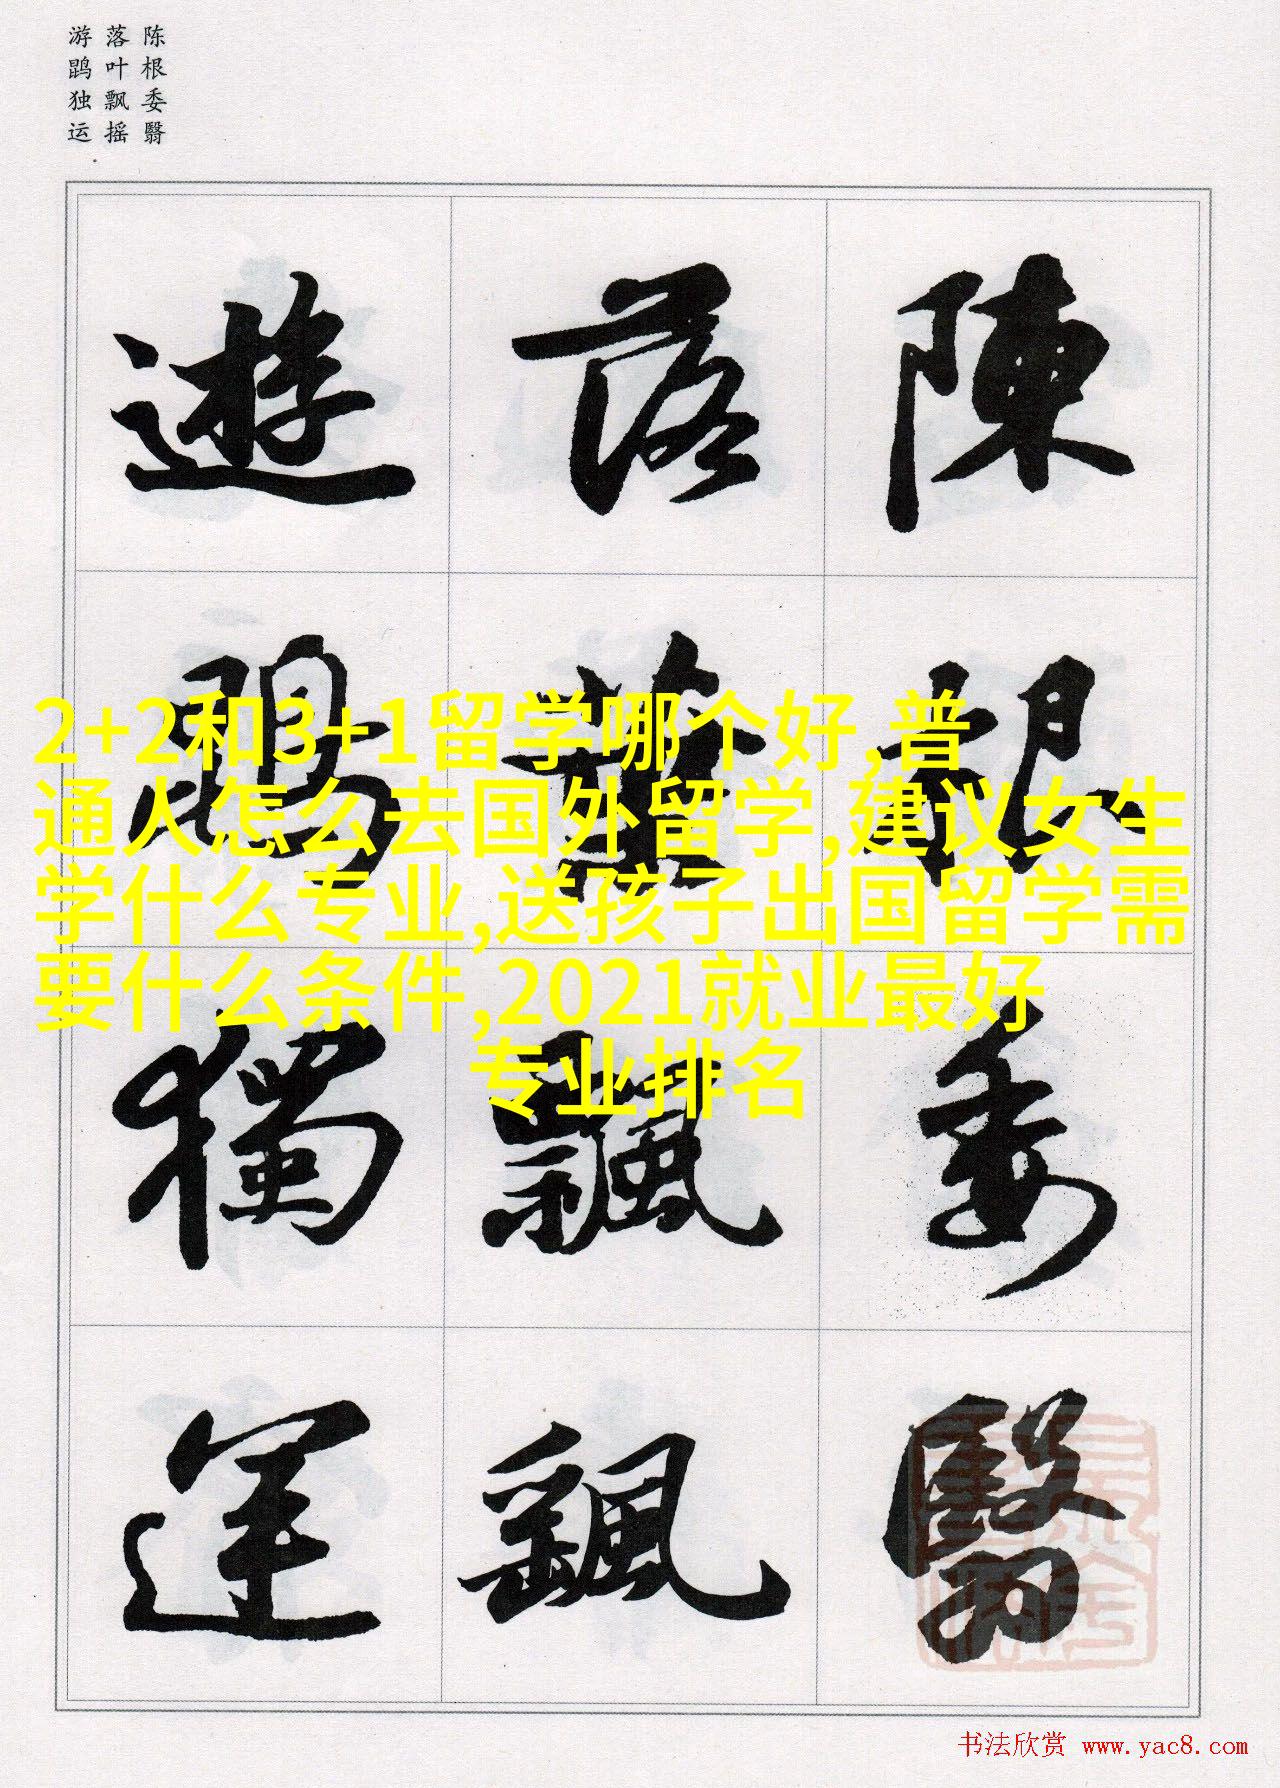 陈根委翳
落叶飘摇
游鹍独运
陳根委翳
落葉飄颻
遊鵾獨運
2+2和3+1留学哪个好,普
通人怎么去国外留学,建议女生
学什么专业,送孩子出国留学需
要什么条件,2021就业最好
专业排名
书法欣赏 www.yac8.com